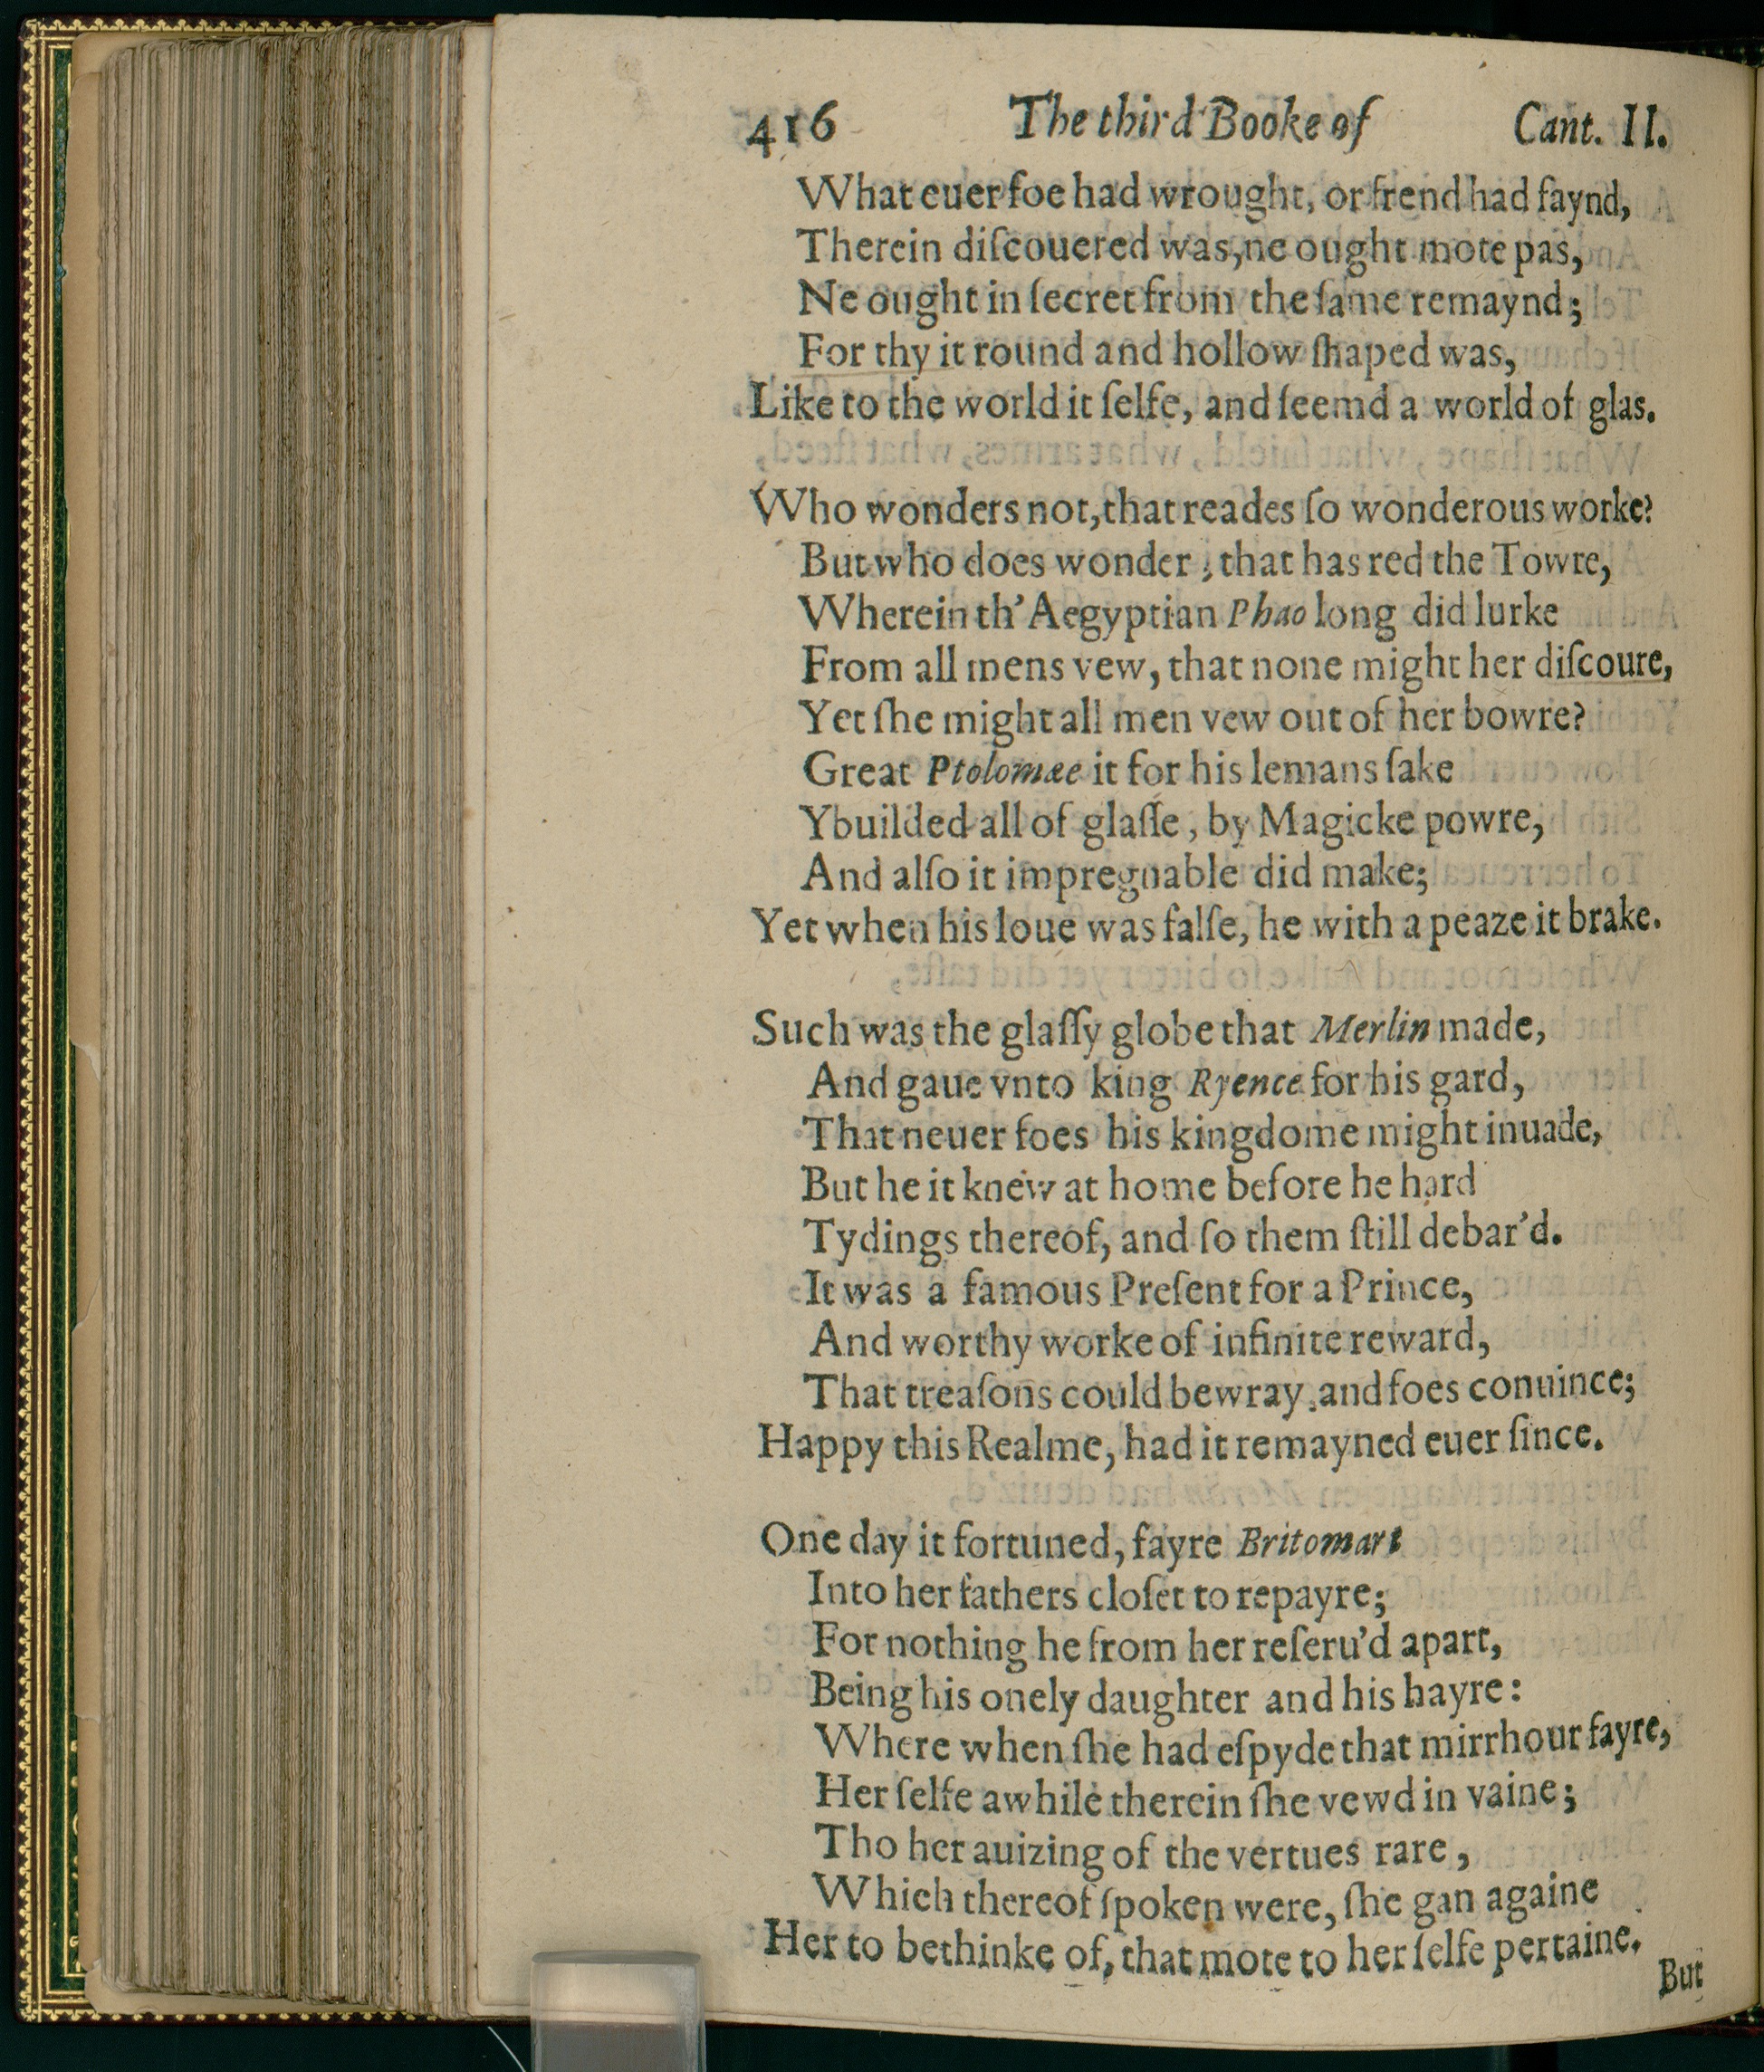 416 The third Booke of Cant. II.
What euer foe had wrought, or frend had faynd,
Therein diſcouered was, ne ought mote pas,
Ne ought in ſecret from the ſame remaynd;
For thy it round and hollow ſhaped was,
Like to the world it ſelfe, and ſeemd a world of glas.
Who wonders not, that reades ſo wonderous worke?
But who does wonder, that has red the Towre,
Wherein th' Aegyptian Phao long did lurke
From all mens vew, that none might her diſcoure,
Yet ſhe might all men vew out of her bowre?
Great Ptolomæe it for his lemans ſake
Ybuilded all of glaſſe, by Magicke powre,
And alſo it impregnable did make;
Yet when his loue was falſe, he with a peaze it brake.
Such was the glaſſy globe that Merlin made,
And gaue vnto king Ryence for his gard,
That neuer foes his kingdome might inuade,
But he it knew at home before he hard
Tydings thereof, and ſo them ſtill debar'd.
It was a famous Preſent for a Prince,
And worthy worke of infinite reward,
That treaſons could bewray, and foes conuince;
Happy this Realme, had it remayned euer ſince.
One day it fortuned, fayre Britomart
Into her fathers cloſet to repayre;
For nothing he from her reſeru'd apart,
Being his onely daughter and his hayre:
Where when ſhe had eſpyde that mirrhour fayre,
Her ſelfe awhile therein ſhe vewd in vaine;
Tho her auizing of the vertues rare,
Which thereof ſpoken were, ſhe gan againe
Her to bethinke of, that mote to her ſelfe pertaine.
But